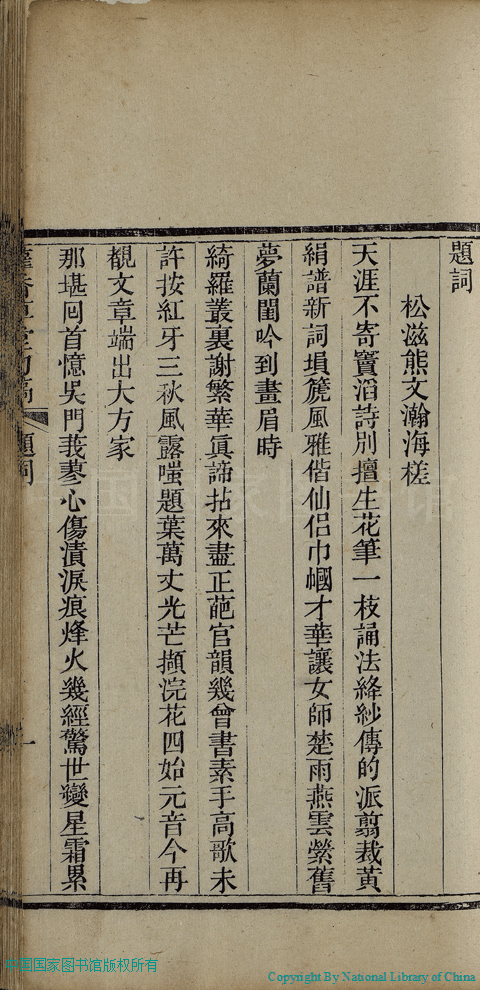 題詞
松滋熊文瀚海槎
天涯不寄竇滔詩別擅生花筆一枝誦法絳紗傳的派翦裁黃
絹譜新詞塤篪風雅偕仙侣巾幗才華讓女師楚雨燕雲縈舊
夢蘭閨吟到畫眉時
綺羅叢裏謝繁華眞諦拈來盡正葩官韻幾曾書素手高歌未
許按紅牙三秋風露嗤題葉萬丈光芒擷浣花四始元音今再
覩文章端出大方家
那堪囘首憶吳門莪蓼心傷漬淚痕烽火幾經驚世變星霜累
題詞
一
中国国家图书馆版权所有
Copyright By National Library of China